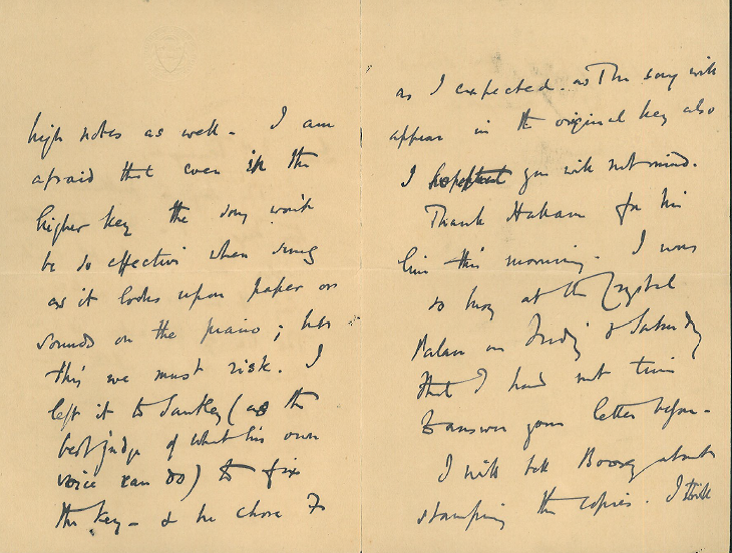 high notes as well - I am
afraid that even in the
higher key the song won't
be so effective when sung
as it looks upon paper or
sounds on the piano; but
this we must risk. I
left it to Santley (as the
best judge of what his own
voice can do) to fix
the key - & he chose F
as I expected. The song will
appear in the original key also
I you will not mind.
Thank for his
line this morning. I was
so busy at the Crystal
Palace on Friday & Saturday
that I had not time
to answer your letter before -
I will tell Boosey about
stamping the copies. I think